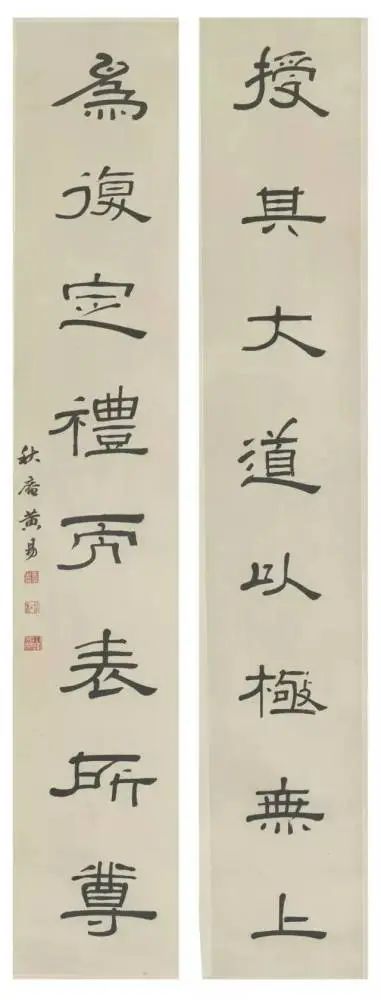 授其大道以極無上
爲復定禮而表所尊
秋庵黃易